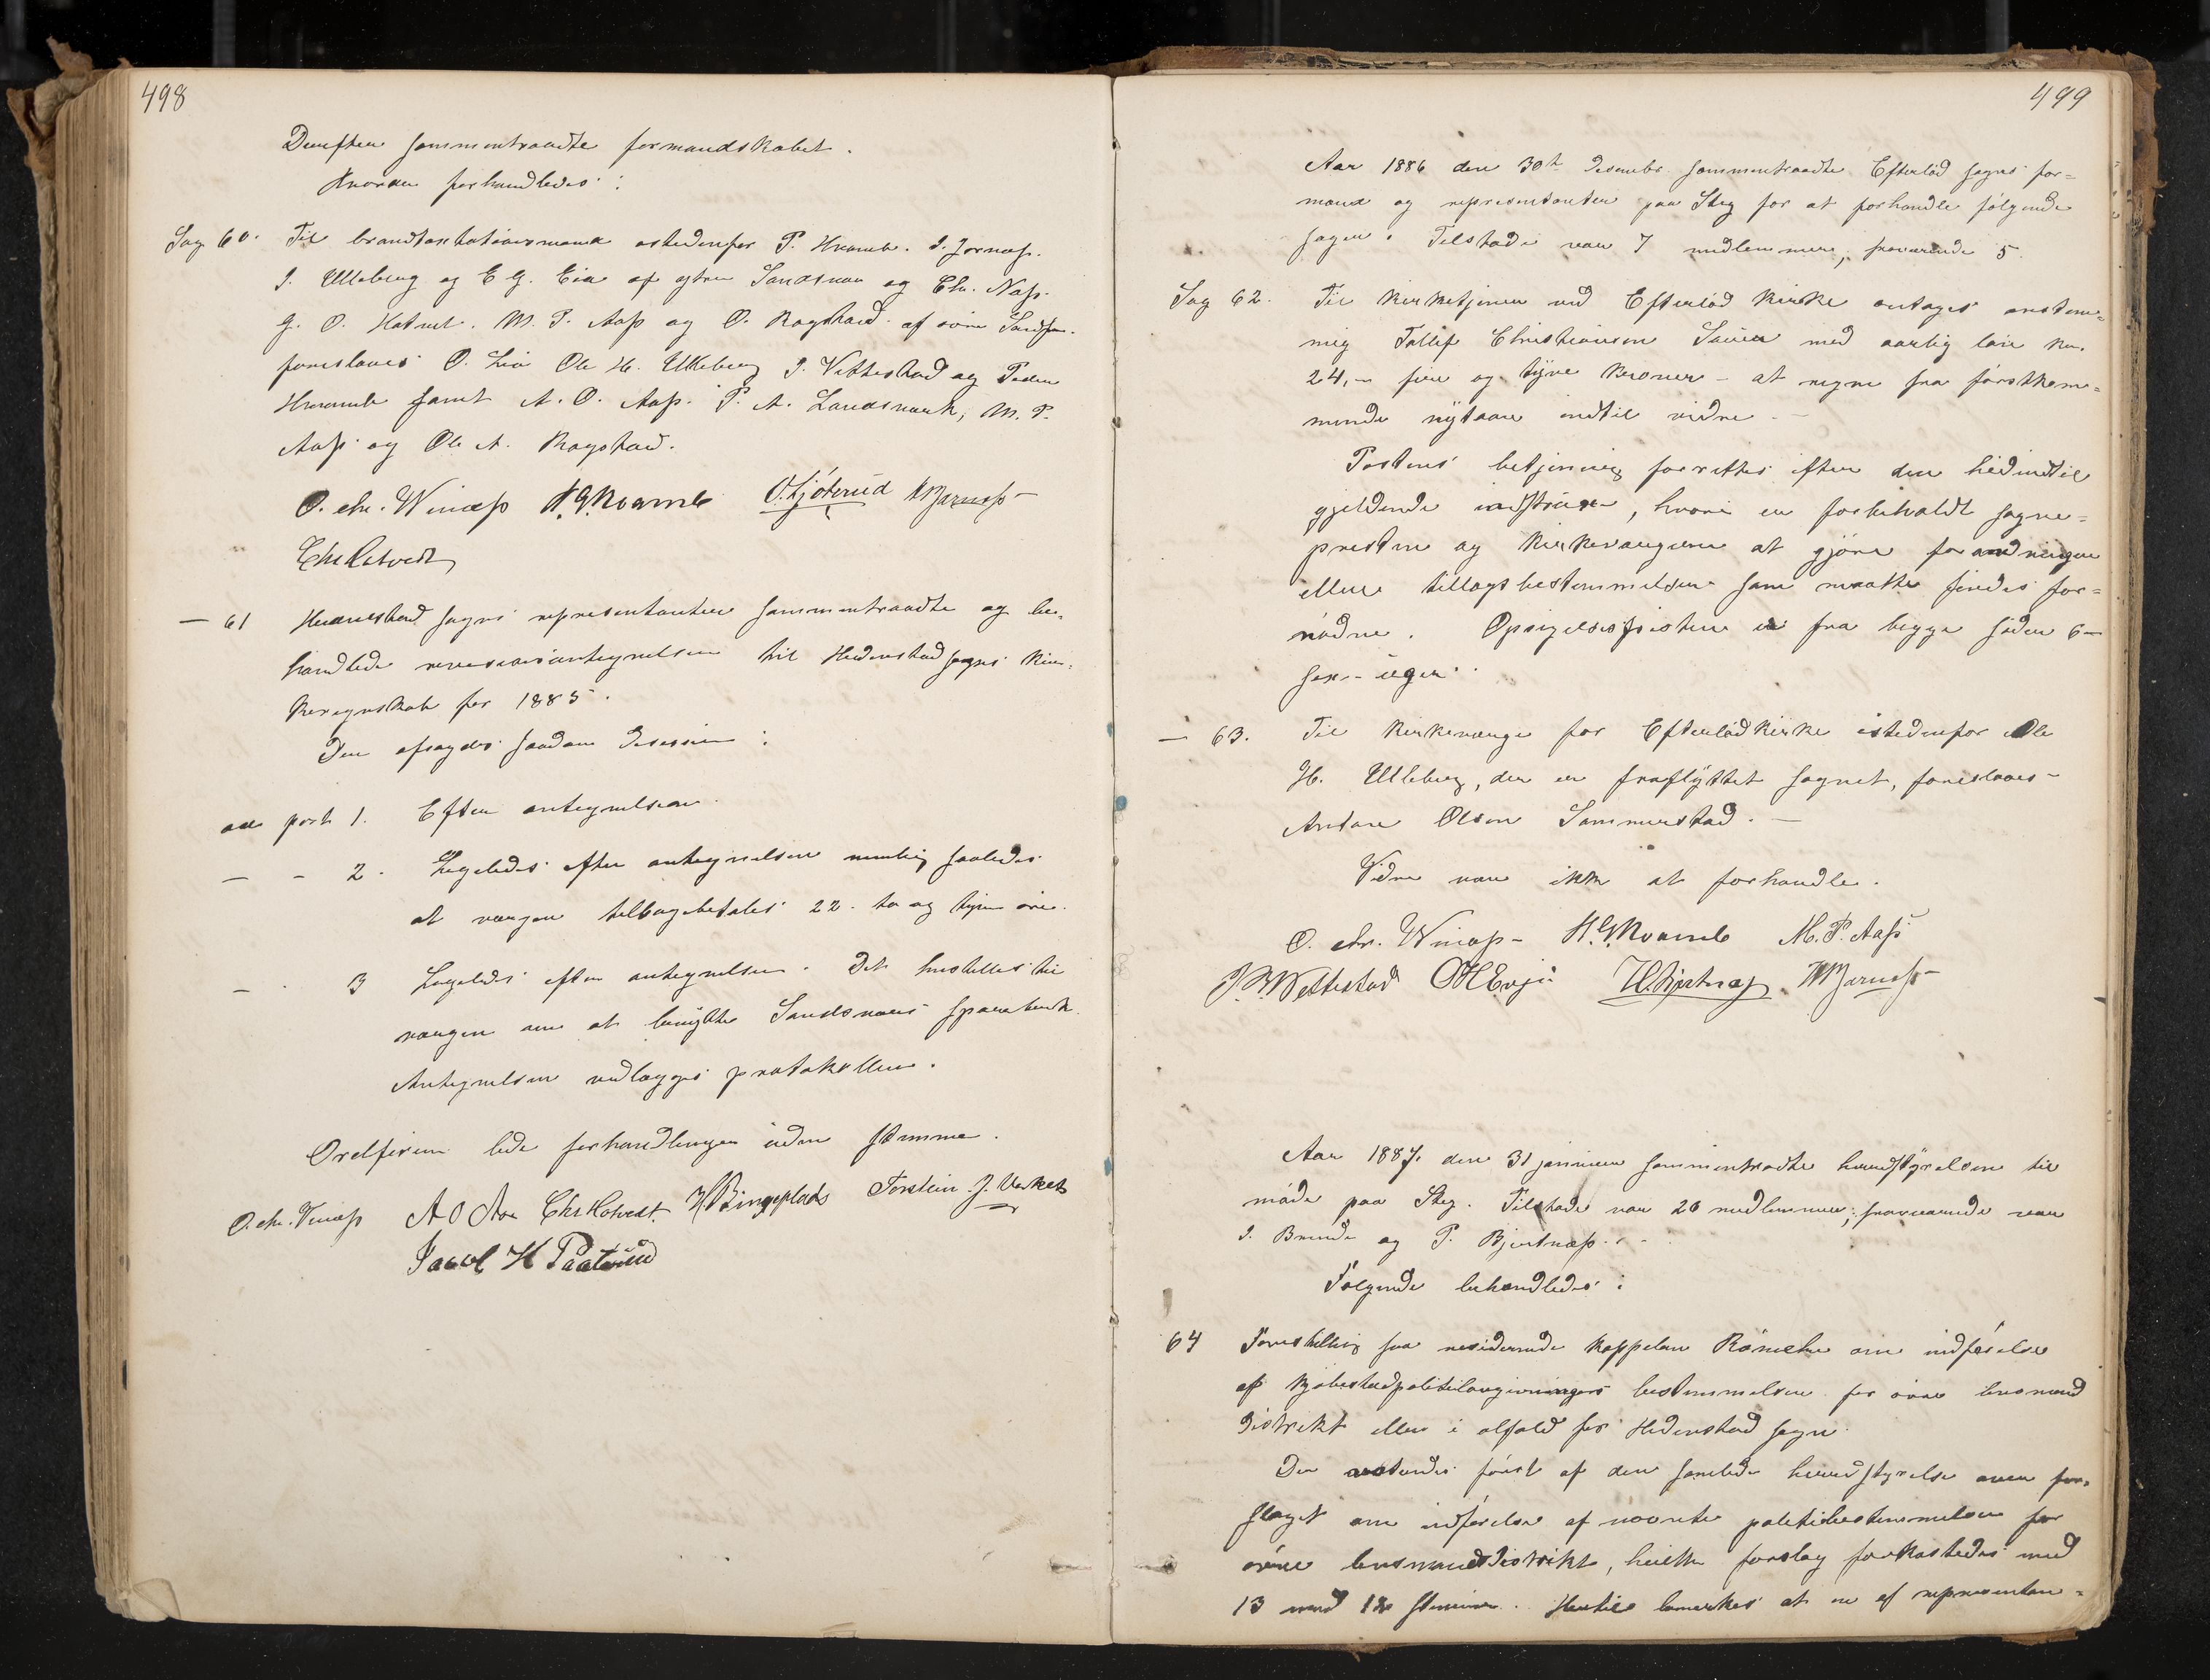 498
Derefter sammentraadte formandskabet.
Hvorda forhandledes:
Sag 60. Til brandtaxtationsmænd istedenfor P. Hvamb. I. Jarnæs.
I. Ulleberg og E G. Eia af ytre Sandsvær og Chr. Næss.
G. O. M. P. Aass og O. Ragstad af øvre Sandsv.
foreslaaes O. Lia Ole H. Ulleberg I. Vettestad og Peder
Hvamb samt A. O. Aass. P. A. Landsverk, M. P.
Aass og Ole A. Ragstad.
O. chr. Winæss H. G. Kvamb O. Tjøterud Jarnæss
Chr Hotvedt
— 61 Hedenstad sogns representanter sammentraadte og be-
handlede revisionsantegnelser til Hedenstad sogns kir-
keregnskab for 1885.
Der afsagdes saadan Desission:
ad post 1. Efter antegnelsen.
— - 2. Ligeledes efter antegnelsen nemlig saaledes
at værgen tilbagebetales 22. to og tyve øre.
— - 3 Ligeledes efter antegnelsen. Det henstilles til
værgen om at benytte Sandsværs sparebank.
Antegnelsen vedlægges protokollen.
Ordføreren lede forhandlingen uden stemme.
O. chr. Vinæss A O Aas Chr Hotvedt. H. Bingeplads Torstein. J. Verket
Jacob H Paaterud
499
Aar 1886 den 30te Desembr. sammentraadte Efteløð sogns for-
mænd og representanter paa Steg for at forhandle følgende
sager. Tilstæde var 7 medlemmer, fraværende 5.
Sag 62. Til kirketjener ved Efteløð kirke antages enstem-
mig Tollef Christiansen med aarlig løn kr.
24,- fire og tyve kroner - at regne fra førstkom-
mende nytaar indtil videre. -
Postens betjening forrettes efter den hidindtil
gjeldende instrux, hvori er forbeholdt sogne-
presten og kirkeværgerne at gjøre forandringer
eller tillægsbestemmelser som maatte findes for-
nødne. Opsigelsesfristen er fra begge sider 6 -
sex - uger.
— 63. Til kirkeværge for Efteløð kirke istedenfor Ole
H. Ulleberg, der er fraflyttet sognet, foreslaaes -
Antone Olsen Sommerstad. -
Videre var ikke at forhandle.
O. chr. Winæss - H. G. Kvamb M. P. Aass
Vettestad O H Evju H. Bjertnæs Jarnæss
Aar 1887. den 31 januar sammentraadte herredstyrelsen til
møde paa Steg. Tilstæde var 26 medlemmer; fraværende var
I. Brende og P. Bjertnæss. -
Følgende behandledes:
64 Forestilling fra residerende kappelan om indførelse
af kjøbstadpolitilovgivningens bestemmelser for øvre lensmand
distrikt eller i alfald for Hedenstad sogn.
Der voteredes først af den samlede herredstyrelse over for-
slaget om indførelse af nævnte politibestemmelser for
øvre lensmandsdistrikt, hvilket forslag forkastedes med
13 mod 12 stemmer. Hertil bemerkes at en af representan-